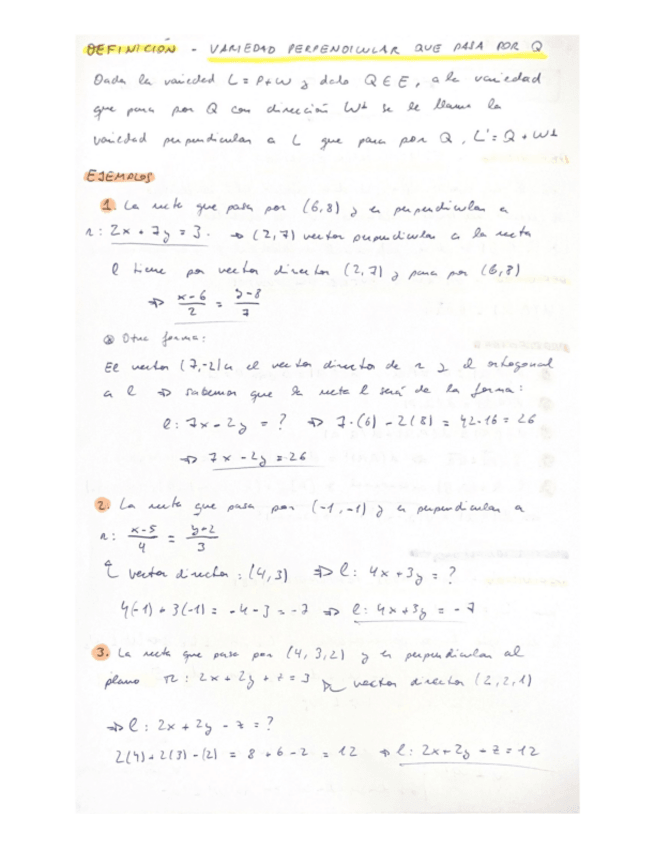 DEFINICIÓN - VARIEDAD PERPENDICULAR QUE PASA POR Q
Dada la variedad L = P+W y dado Q ∈ E, a la variedad
que pasa por Q con dirección W⊥ se le llama la
variedad perpendicular a L que pasa por Q, L' = Q + W⊥
EJEMPLOS
1. La recta que pasa por (6,8) y es perpendicular a
r: 2x + 7y = 3. ⇒ (2,7) vector perpendicular a la recta
l tiene por vector director (2,7) y pasa por (6,8)
⇒ x-6/2 = y-8/7
Otra forma:
El vector (7,-2) es el vector director de r y el ortogonal
a l ⇒ sabemos que la recta l será de la forma:
l: 7x - 2y = ? ⇒ 7·(6) - 2(8) = 42-16 = 26
⇒ 7x - 2y = 26
2. La recta que pasa por (-1,-1) y es perpendicular a
r: x-5/4 = y+2/3
vector director: (4,3) ⇒ l: 4x + 3y = ?
4(-1) + 3(-1) = -4-3 = -7 ⇒ l: 4x+3y = -7
3. La recta que pasa por (4,3,2) y es perpendicular al
plano π: 2x + 2y + z = 3 vector director (2,2,1)
⇒ l: 2x + 2y - z = ?
2(4) + 2(3) - (2) = 8 + 6 - 2 = 12 ⇒ l: 2x+2y + z = 12